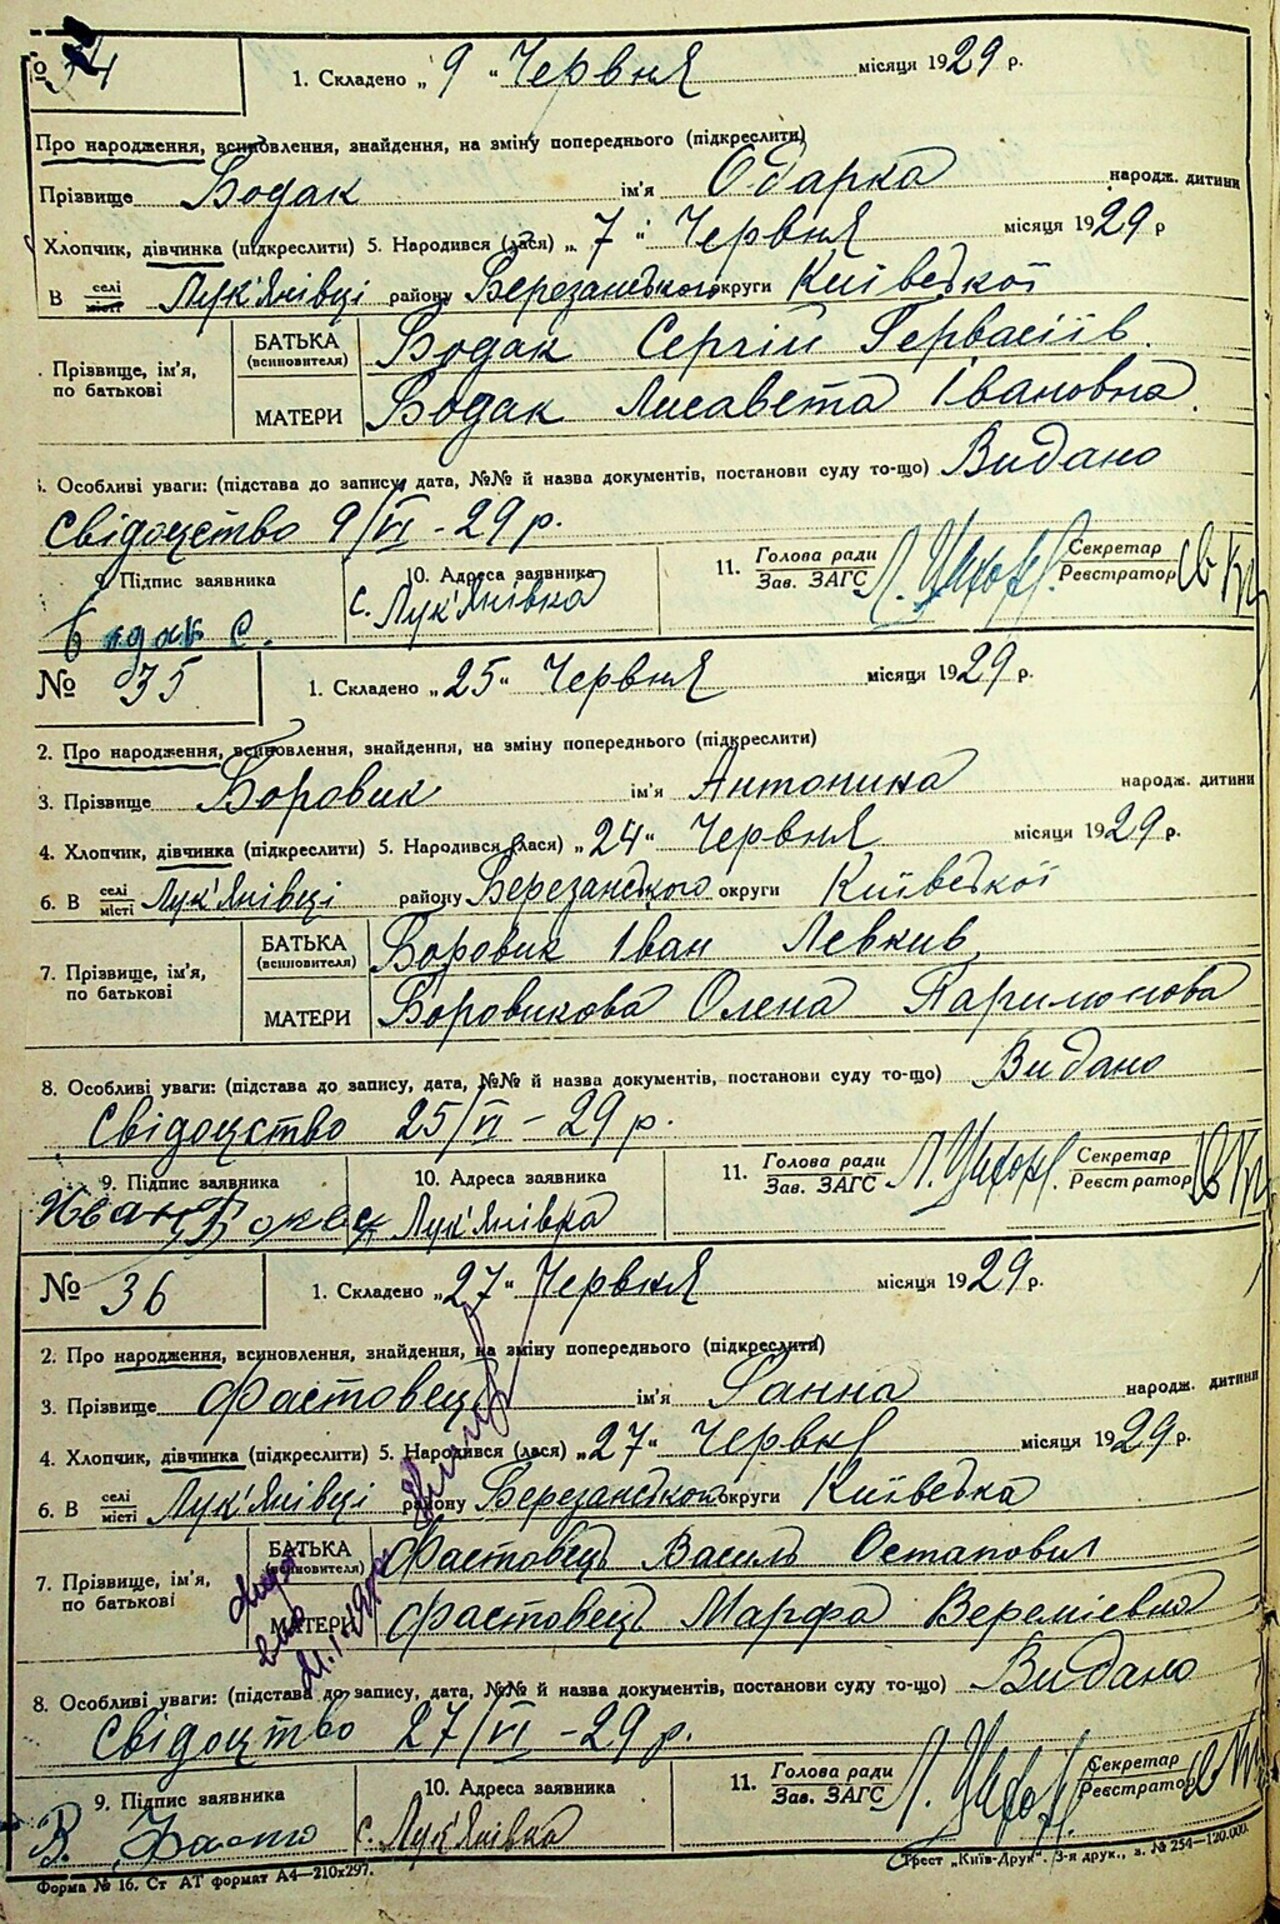 34
1. Складено „ 9 “ Червня місяця 1929 р.
Про народження, всиновлення, знайдення, на зміну попереднього (підкреслити)
Прізвище Бодак ім'я Одарка народж. дитини
Хлопчик, дівчинка (підкреслити) 5. Народився (лася) „ 7 “ Червня місяця 1929 р
В селі місті Лук'янівці району Березанського округи Київської
Прізвище, ім'я, по батькові
БАТЬКА (всиновителя) Бодак Сергій Гервасіїв.
МАТЕРИ Бодак Лисавета Івановна.
. Особливі уваги: (підстава до запису, дата, №№ й назва документів, постанови суду то-що) Видано
Свідоцтво 9/VI - 29 р.
9. Підпис заявника 10. Адреса заявника 11. Голова ради Зав. ЗАГС Секретар Реєстратор
Бодак С. с. Лук'янівка
№ 35 1. Складено „ 25 “ Червня місяця 1929 р.
2. Про народження, всиновлення, знайдення, на зміну попереднього (підкреслити)
3. Прізвище Боровик ім'я Антонина народж. дитини
4. Хлопчик, дівчинка (підкреслити) 5. Народився (лася) „ 24 “ Червня місяця 1929 р.
6. В селі місті Лук'янівці району Березанського округи Київської
7. Прізвище, ім'я, по батькові
БАТЬКА (всиновителя) Боровик Іван Левків
МАТЕРИ Боровикова Олена Паримонова
8. Особливі уваги: (підстава до запису, дата, №№ й назва документів, постанови суду то-що) Видано
Свідоцтво 25/VI - 29 р.
9. Підпис заявника 10. Адреса заявника 11. Голова ради Зав. ЗАГС Секретар Реєстратор
Иван Лук'янівка
№ 36 1. Складено „ 27 “ Червня місяця 1929 р.
2. Про народження, всиновлення, знайдення, на зміну попереднього (підкреслити)
3. Прізвище Фастовець ім'я Ганна народж. дитини
4. Хлопчик, дівчинка (підкреслити) 5. Народився (лася) „ 27 “ Червня місяця 1929 р.
6. В селі місті Лук'янівці району Березанського округи Київська
7. Прізвище, ім'я, по батькові
БАТЬКА (всиновителя) Фастовець Василь Остапович
МАТЕРИ Фастовець Марфа Веремієвна
8. Особливі уваги: (підстава до запису, дата, №№ й назва документів, постанови суду то-що) Видано
Свідоцтво 27/VI - 29 р.
9. Підпис заявника 10. Адреса заявника 11. Голова ради Зав. ЗАГС Секретар Реєстратор
В. Фасто с. Лук'янівка
Форма № 16. Ст АТ формат А4—210х297. Трест „Київ-Друк“. 3-я друк., з. № 254—120.000.